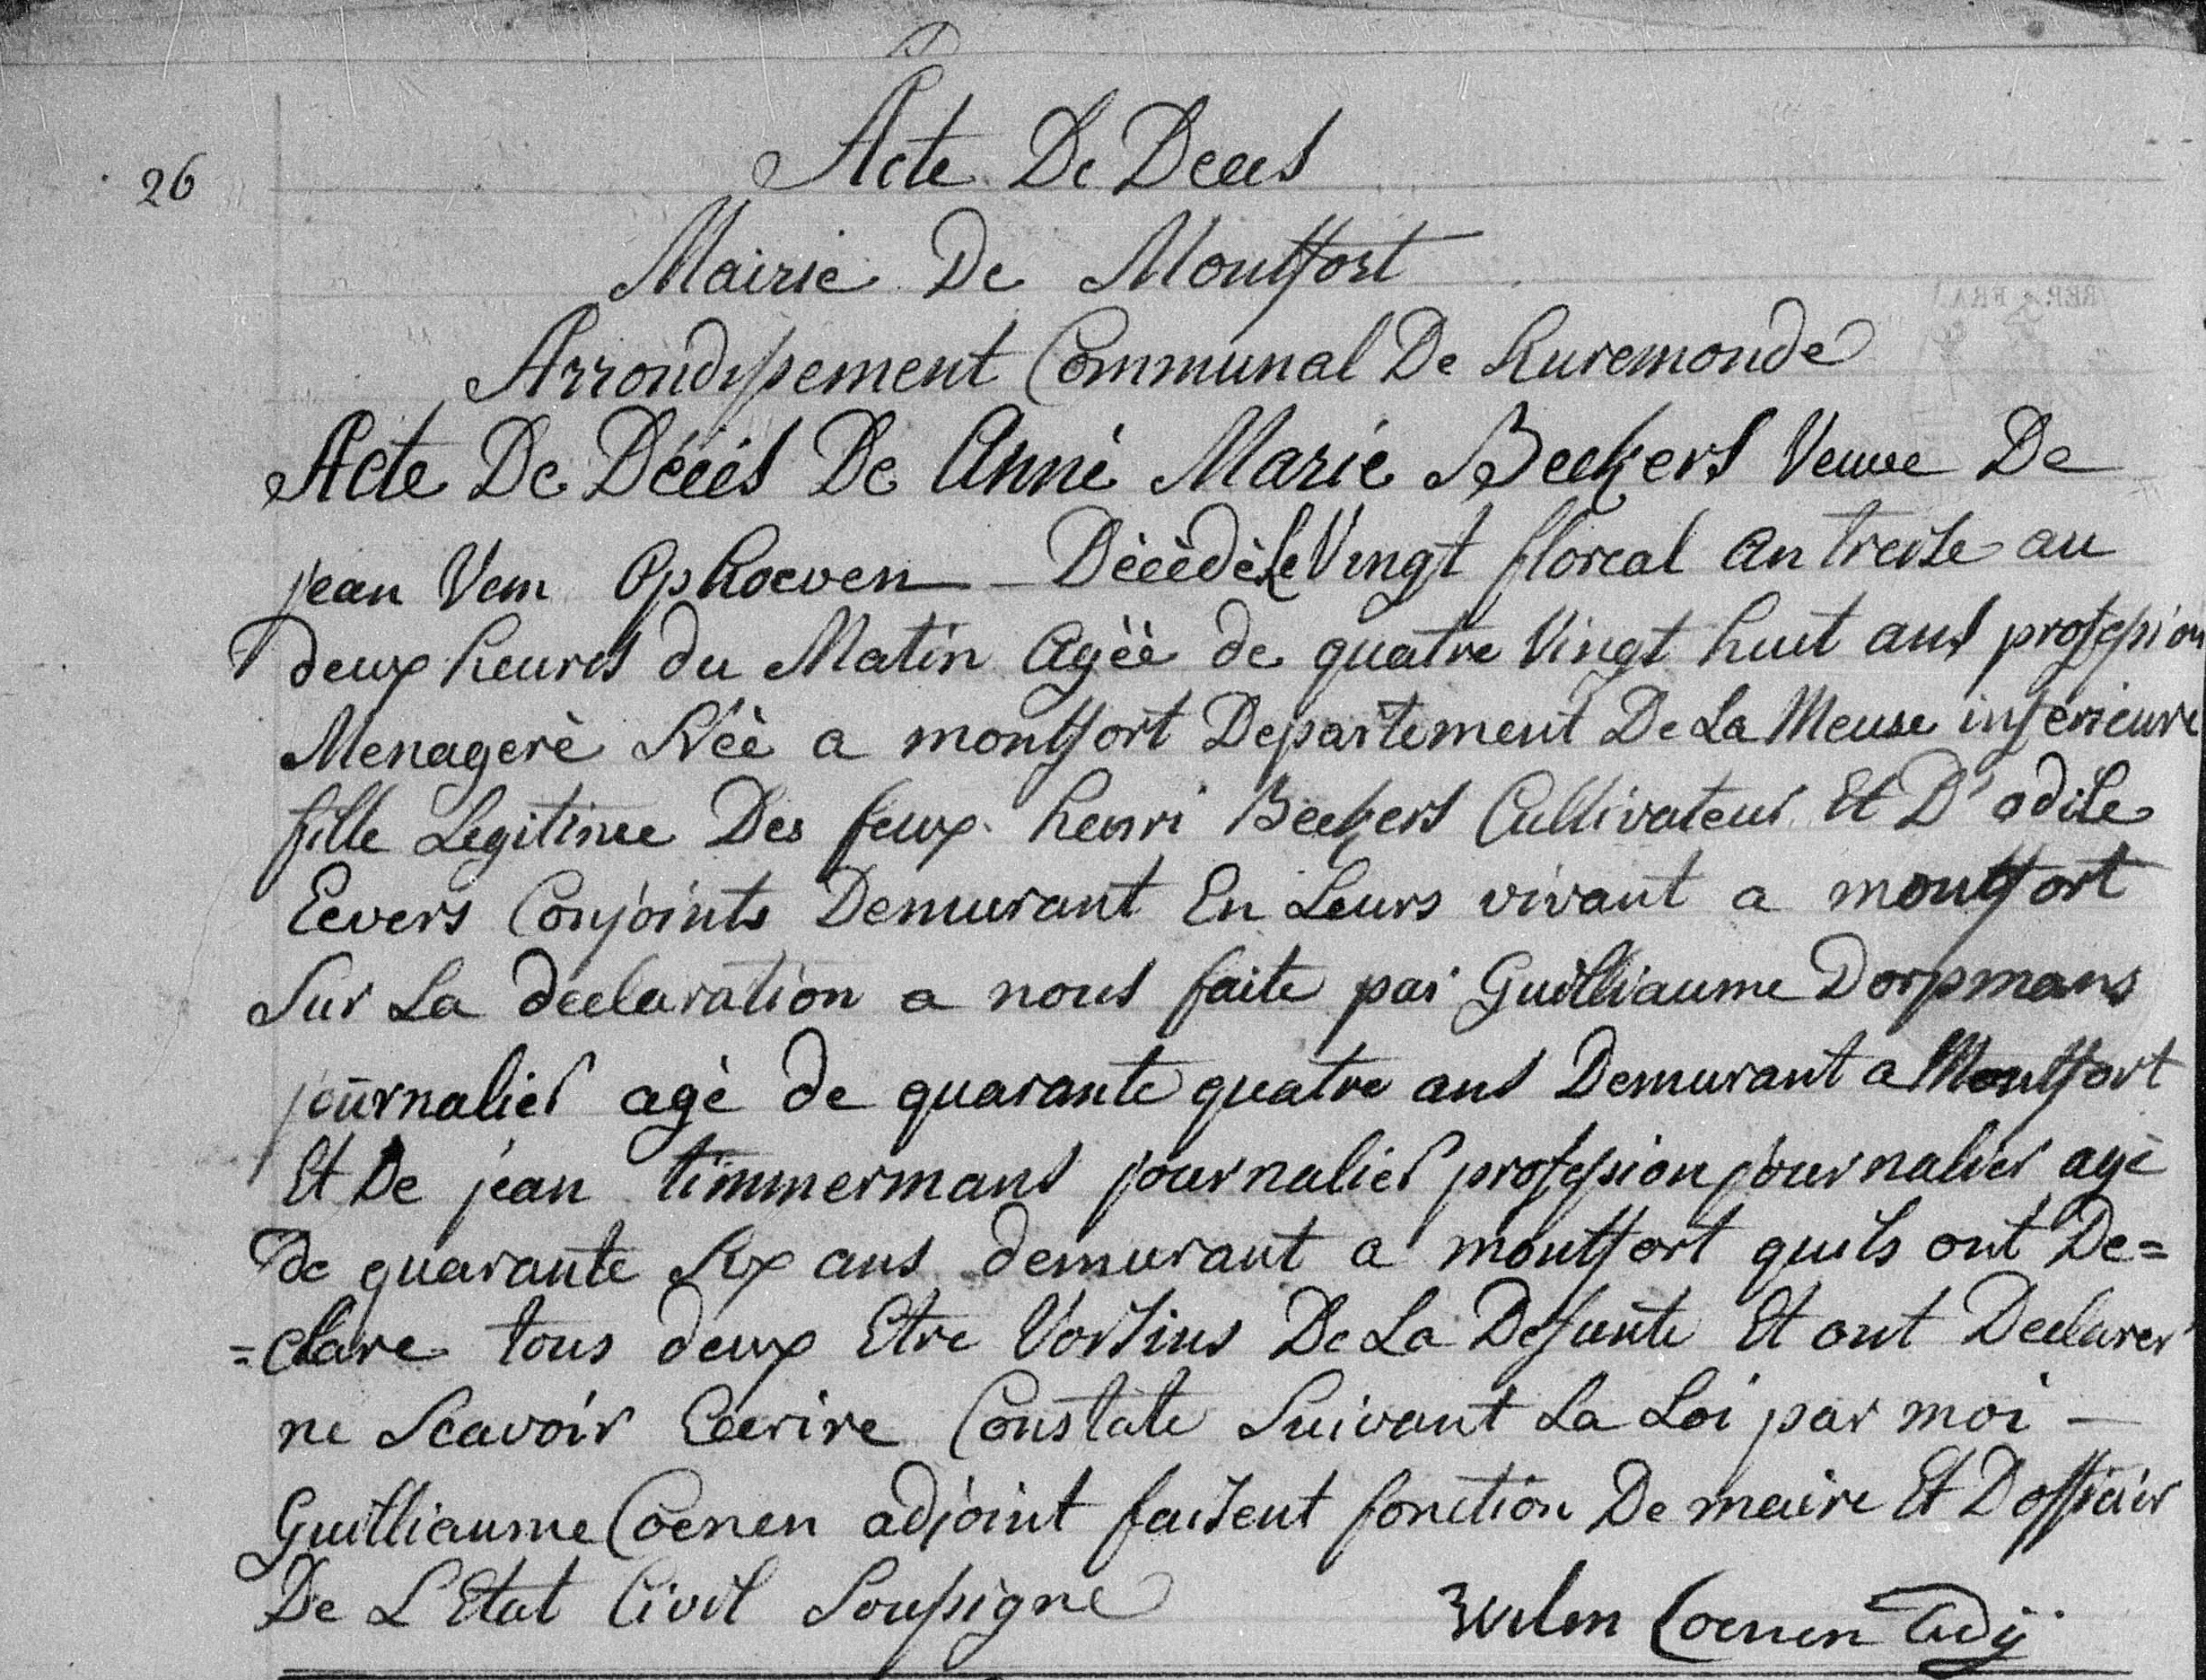 26
Acte De Deces
Mairie De Montfort
Arrondissement Communal De Ruremonde
Acte De Décés De Anné Marie Beckers Veuve De
jean Van Ophoeven Dècèdè Le Vingt floreal an treise au
deux heures du Matin Agèè de quatre Vingt huit ans profession
Menagerè Nèè a montfort Departement De La Meuse inferieure
fille Legitime Des feux henri Beckers Cultivateur Et D'odile
Eevers Conjoints Demurant En Leurs vivant a montfort
Sur La declaration a nous faite par Guilliaume Dorpmans
journalier agè de quarante quatre ans Demurant a Montfort
Et De jean timmermans journalier profession journalier agè
de quarante Six ans demurant a montfort quils ont De=
=clare tous deux Etre Voisins De La Defunte Et ont Declarer
ne Scavoir Ecrire Constate Suivant La Loi par moi -
Guilliaume Coenen adjoint faisent fonction De maire Et Dofficier
De L'Etat Civil Soussigne
Willem Coenen Adj